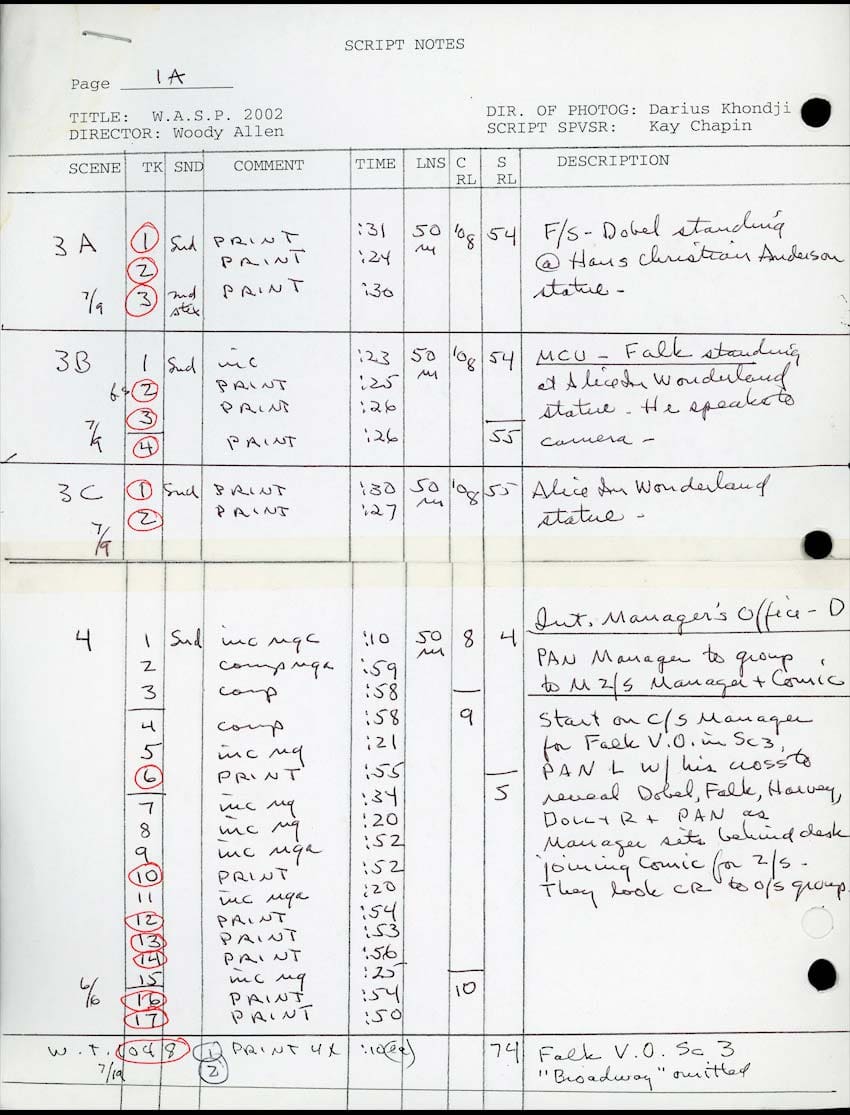 SCRIPT NOTES
Page 1A
TITLE: W.A.S.P. 2002
DIR. OF PHOTOG: Darius Khondji
DIRECTOR: Woody Allen
SCRIPT SPVSR: Kay Chapin
SCENE TK SND COMMENT TIME LNS C RL S RL DESCRIPTION
3A 1 Snd PRINT :31 50 m 108 54 F/S - Dobel standing
2 PRINT :24 @ Hans Christian Anderson
7/9 3 2nd stix PRINT :30 statue -
3B 1 Snd inc :23 50 m 108 54 MCU - Falk standing
2 PRINT :25 at Alice In Wonderland
3 PRINT :26 statue - He speaks to
7/9 4 PRINT :26 55 camera -
3C 1 Snd PRINT :30 50 m 108 55 Alice In Wonderland
7/9 2 PRINT :27 statue -
Int. Manager's Office - D
4 1 Snd inc ngc :10 50 m 8 4
2 comp nga :59 PAN Manager to group
3 comp :58 to M 2/S Manager + Comic
4 comp :58 9 Start on C/S Manager
5 inc ng :21 for Falk V.O. in Sc 3,
6 PRINT :55 PAN L W/ his cross to
7 inc ng :34 5 reveal Dobel, Falk, Harvey,
8 inc ng :20 + R + PAN as
9 inc nga :52 Manager sits behind desk
10 PRINT :52 joining Comic for 2/S -
11 inc nga :20 They look CR to O/S group.
12 PRINT :54
13 PRINT :53
14 PRINT :56
15 inc ng :25
6/6 16 PRINT :54 10
17 PRINT :50
W.T. 1048 1 PRINT 4X :10 (ea) 74 Falk V.O. Sc 3
7/19 2 "Broadway" omitted